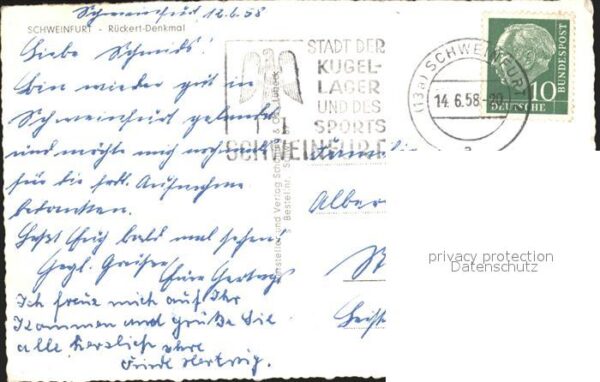 Schweinfurt 12.6.58
SCHWEINFURT - Rückert-Denkmal
Liebe Schmids!
Bin wieder gut in
Schweinfurt gelandet
und möchte mich nochmals
für die frdl. Aufnahme
bedanken.
Laßt Euch bald mal sehen!
Hzgl. Grüße
Eure Hertwigs
Ich freue mich auf Ihr
Kommen und grüße Sie
alle herzlich Ihre
Friedl Hertwig.
STADT DER
KUGEL-
LAGER
UND DES
SPORTS
SCHWEINFURT
(13a) SCHWEINFURT
14.6.58-20
a
10
DEUTSCHE
BUNDESPOST
Hersteller und Verlag Schöning & Co., Lübeck
Bestell.nr.
Familie
Alber
privacy protection
Datenschutz